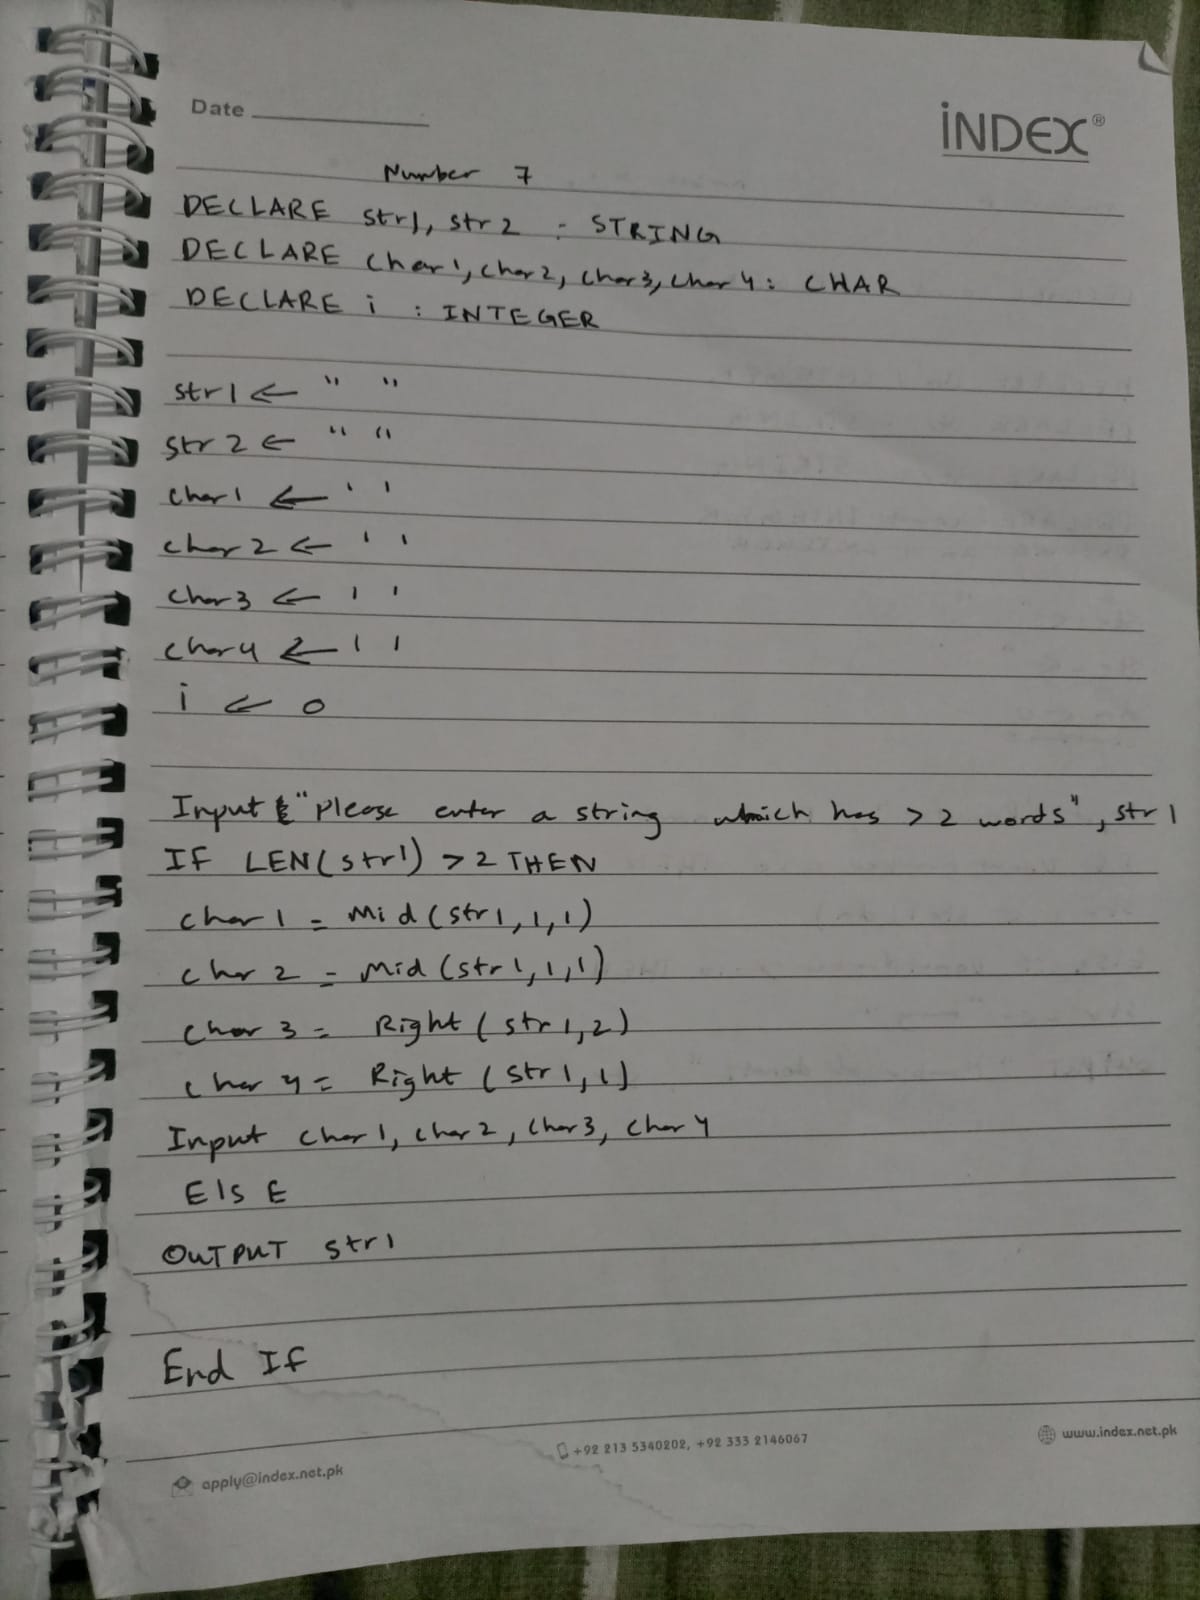 Date
INDEX®
Number 7
DECLARE str1, str2 : STRING
DECLARE char1, char2, char3, char4: CHAR
DECLARE i : INTEGER
str1 ← " "
str2 ← " "
char1 ← ' '
char2 ← ' '
char3 ← ' '
char4 ← ' '
i ← 0
Input "Please enter a string which has > 2 words", str1
IF LEN(str1) > 2 THEN
char1 = Mid(str1,1,1)
char2 = Mid(str1,1,1)
char3 = Right(str1,2)
char4 = Right(str1,1)
Input char1, char2, char3, char4
ElsE
OUTPUT str1
End If
+92 213 5340202, +92 333 2146067
www.index.net.pk
apply@index.net.pk